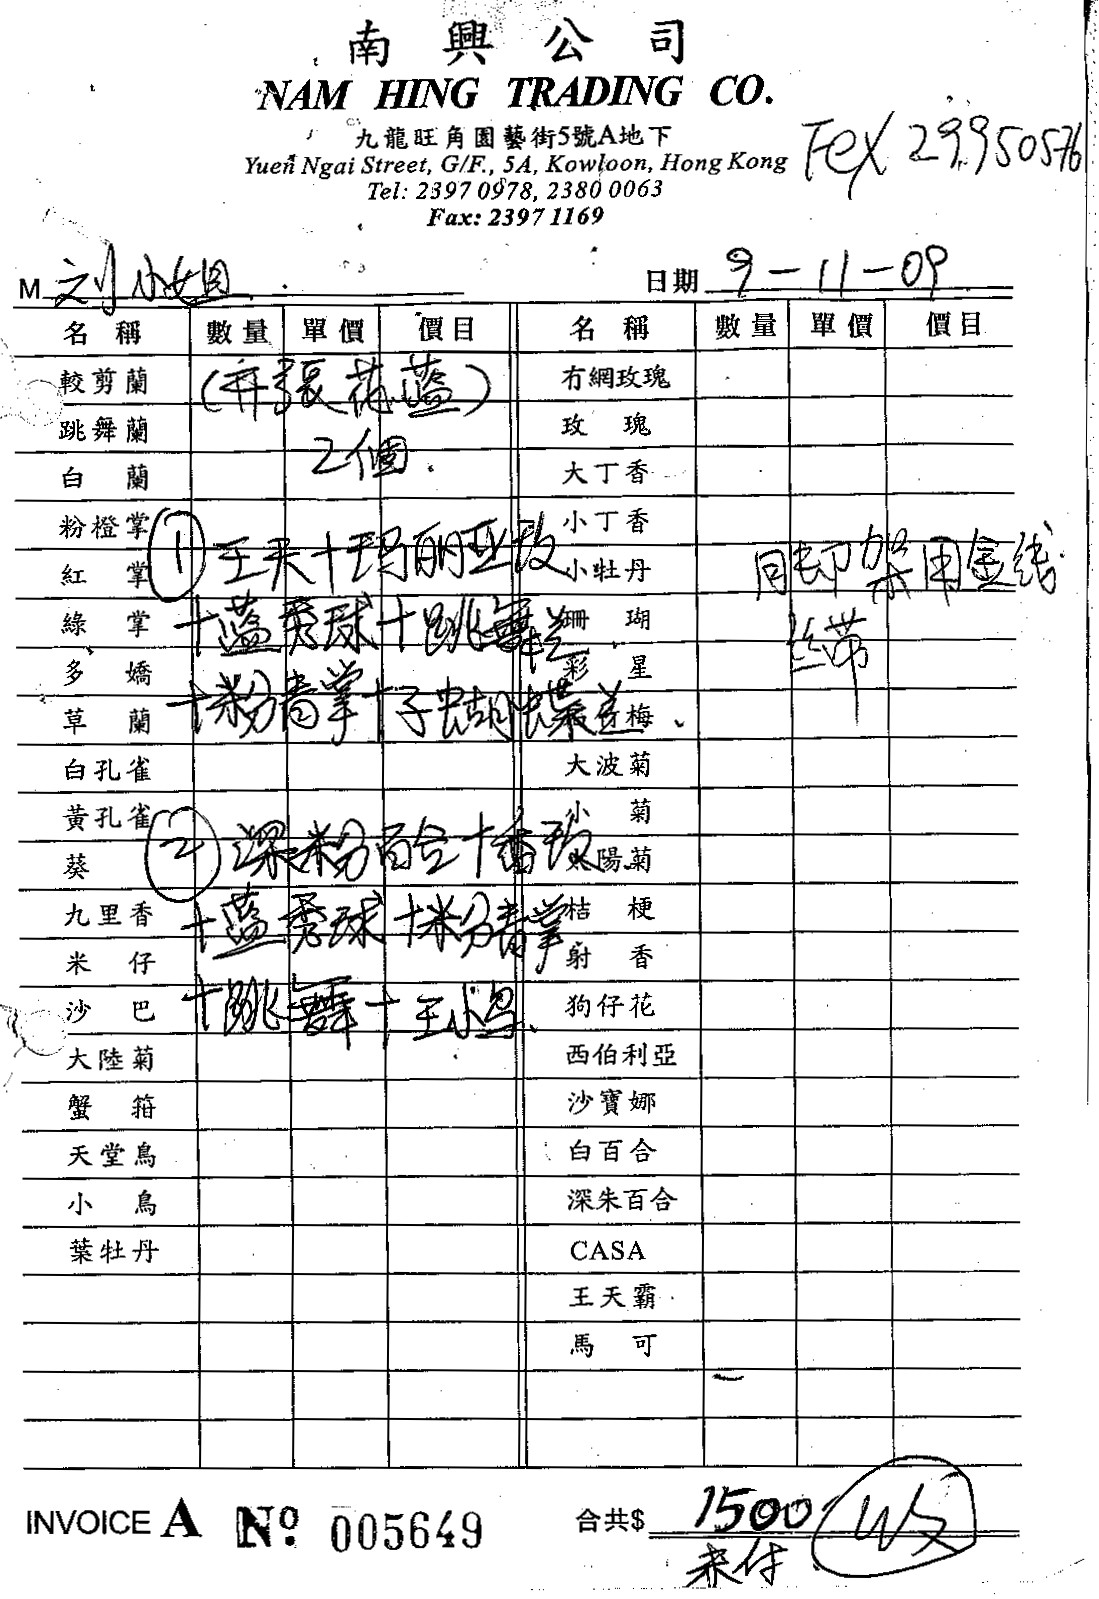 南興公司
NAM HING TRADING CO.
九龍旺角園藝街5號A地下
Yuen Ngai Street, G/F., 5A, Kowloon, Hong Kong
Tel: 2397 0978, 2380 0063
Fax: 2397 1169
Fex 29950576
M 刘小姐
日期 9-11-09
名稱 數量 單價 價目 名稱 數量 單價 價目
較剪蘭 冇網玫瑰
跳舞蘭 玫瑰
白蘭 2個. 大丁香
粉橙掌 小丁香
紅掌 小牡丹
綠掌 珊瑚
多嬌 彩星
草蘭 梅
白孔雀 大波菊
黃孔雀 小菊
葵 陽菊
九里香 桔梗
米仔 射香
沙巴 狗仔花
大陸菊 西伯利亞
蟹箝 沙寶娜
天堂鳥 白百合
小鳥 深朱百合
葉牡丹 CASA
王天霸
馬可
① 王天十玛丽亚玫
十蓝秀球十跳舞兰
十粉青掌十子蝴蝶兰.
② 深粉百合十香玫
十蓝秀球十粉青掌
十跳舞十王小鸟.
用金线
丝带
INVOICE A No. 005649
合共$ 1500
未付